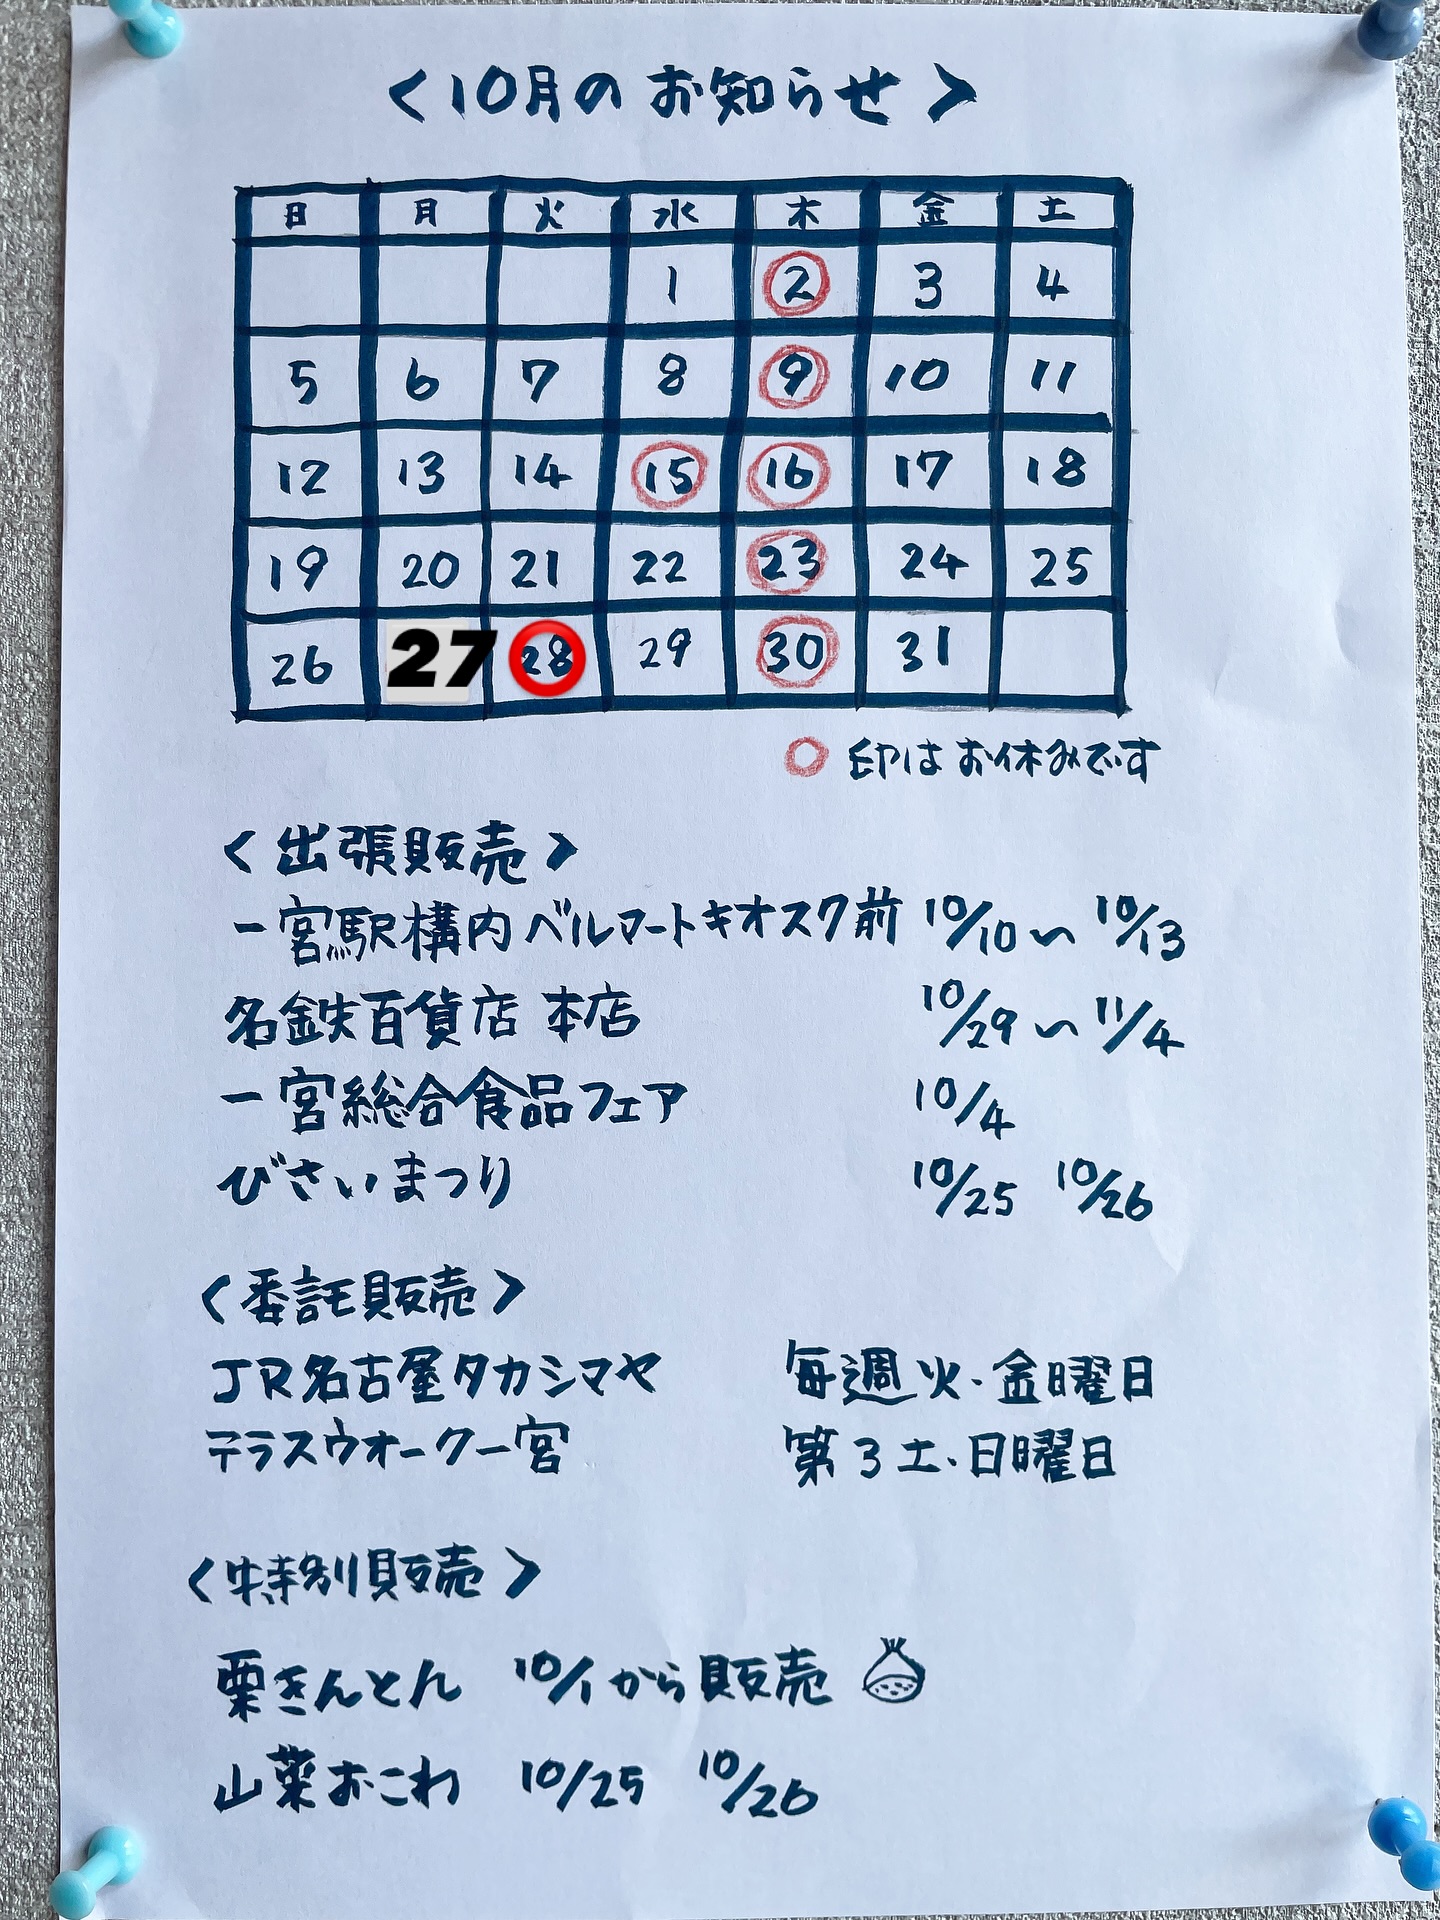 <10月のお知らせ>
日 月 火 水 木 金 土
1 2 3 4
5 6 7 8 9 10 11
12 13 14 15 16 17 18
19 20 21 22 23 24 25
26 27 28 29 30 31
○印はお休みです
<出張販売>
一宮駅構内ベルマートキオスク前 10/10～10/13
名鉄百貨店 本店 10/29～11/4
一宮総合食品フェア 10/4
びさいまつり 10/25 10/26
<委託販売>
JR名古屋タカシマヤ 毎週火・金曜日
テラスウォーク一宮 第3土・日曜日
<特別販売>
栗きんとん 10/1から販売
山菜おこわ 10/25 10/26